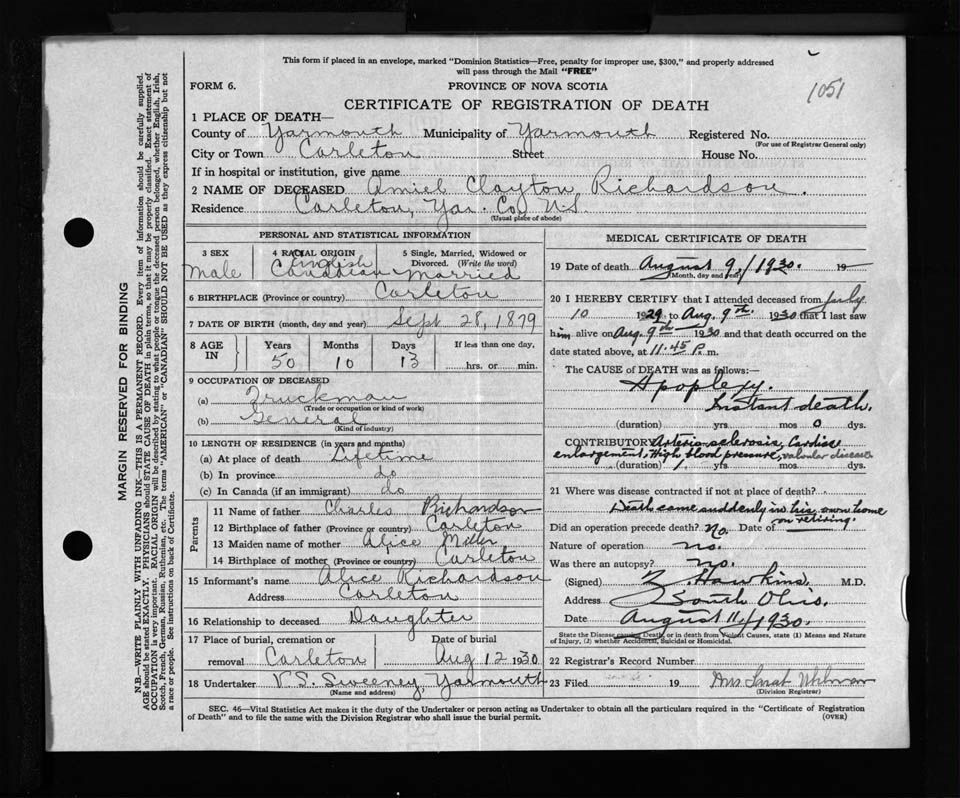 This form if placed in an envelope, marked "Dominion Statistics—Free, penalty for improper use, $300," and properly addressed
will pass through the Mail "FREE"
1051
FORM 6.
PROVINCE OF NOVA SCOTIA
CERTIFICATE OF REGISTRATION OF DEATH
1 PLACE OF DEATH—
County of Yarmouth Municipality of Yarmouth Registered No.
(For use of Registrar General only)
City or Town Carleton Street House No.
If in hospital or institution, give name
2 NAME OF DECEASED Amiel Clayton Richardson.
Residence Carleton, Yar. Co. N.S.
(Usual place of abode)
PERSONAL AND STATISTICAL INFORMATION
3 SEX 4 RACIAL ORIGIN 5 Single, Married, Widowed or
Divorced. (Write the word)
English
Male Canadian Married
6 BIRTHPLACE (Province or country) Carleton
7 DATE OF BIRTH (month, day and year) Sept 28, 1879
8 AGE IN Years Months Days If less than one day,
50 10 13 hrs. or min.
9 OCCUPATION OF DECEASED
(a) Truckman
(Trade or occupation or kind of work)
(b) General
(Kind of industry)
10 LENGTH OF RESIDENCE (in years and months)
(a) At place of death Lifetime
(b) In province do
(c) In Canada (if an immigrant) do
Parents
11 Name of father Charles Richardson
12 Birthplace of father (Province or country) Carleton
13 Maiden name of mother Alice Miller
14 Birthplace of mother (Province or country) Carleton
15 Informant's name Alice Richardson
Address Carleton
16 Relationship to deceased Daughter
17 Place of burial, cremation or Date of burial
removal Carleton Aug 12 1930
18 Undertaker V.S. Sweeney, Yarmouth
(Name and address)
MEDICAL CERTIFICATE OF DEATH
19 Date of death August 9,/1930. 19
(Month, day and year)
20 I HEREBY CERTIFY that I attended deceased from July
10 1929 to Aug. 9th 1930 that I last saw
him alive on Aug. 9th 1930 and that death occurred on the
date stated above, at 11.45 P. m.
The CAUSE of DEATH was as follows:—
Apoplexy.
Instant death.
(duration) yrs. mos 0 dys.
CONTRIBUTORY Arterio sclerosis, Cardiac
enlargement, High blood pressure, valvular disease
(duration) yrs mos dys.
21 Where was disease contracted if not at place of death?
Death came suddenly in his own home
on retiring.
Did an operation precede death? No. Date of
Nature of operation no.
Was there an autopsy? no.
(Signed) Z. Hawkins, M.D.
Address South Ohio.
Date August 11/1930.
State the Disease causing Death, or in death from Violent Causes, state (1) Means and Nature
of Injury, (2) whether Accidental, Suicidal or Homicidal.
22 Registrar's Record Number
23 Filed 19 Mrs Sarah
(Division Registrar)
SEC. 46—Vital Statistics Act makes it the duty of the Undertaker or person acting as Undertaker to obtain all the particulars required in the "Certificate of Registration
of Death" and to file the same with the Division Registrar who shall issue the burial permit.
(OVER)
MARGIN RESERVED FOR BINDING
N.B—WRITE PLAINLY WITH UNFADING INK—THIS IS A PERMANENT RECORD. Every item of information should be carefully supplied.
AGE should be stated EXACTLY. PHYSICIANS should STATE CAUSE OF DEATH in plain terms, so that it may be properly classified. Exact statement of
OCCUPATION is very important. RACIAL ORIGIN will be described by stating to what people or tongue the deceased person belonged, whether English, Irish,
Scotch, French, German, Russian, Ruthenian, etc. The terms "AMERICAN" or "CANADIAN" SHOULD NOT BE USED as they express citizenship but not
a race or people. See instructions on back of Certificate.